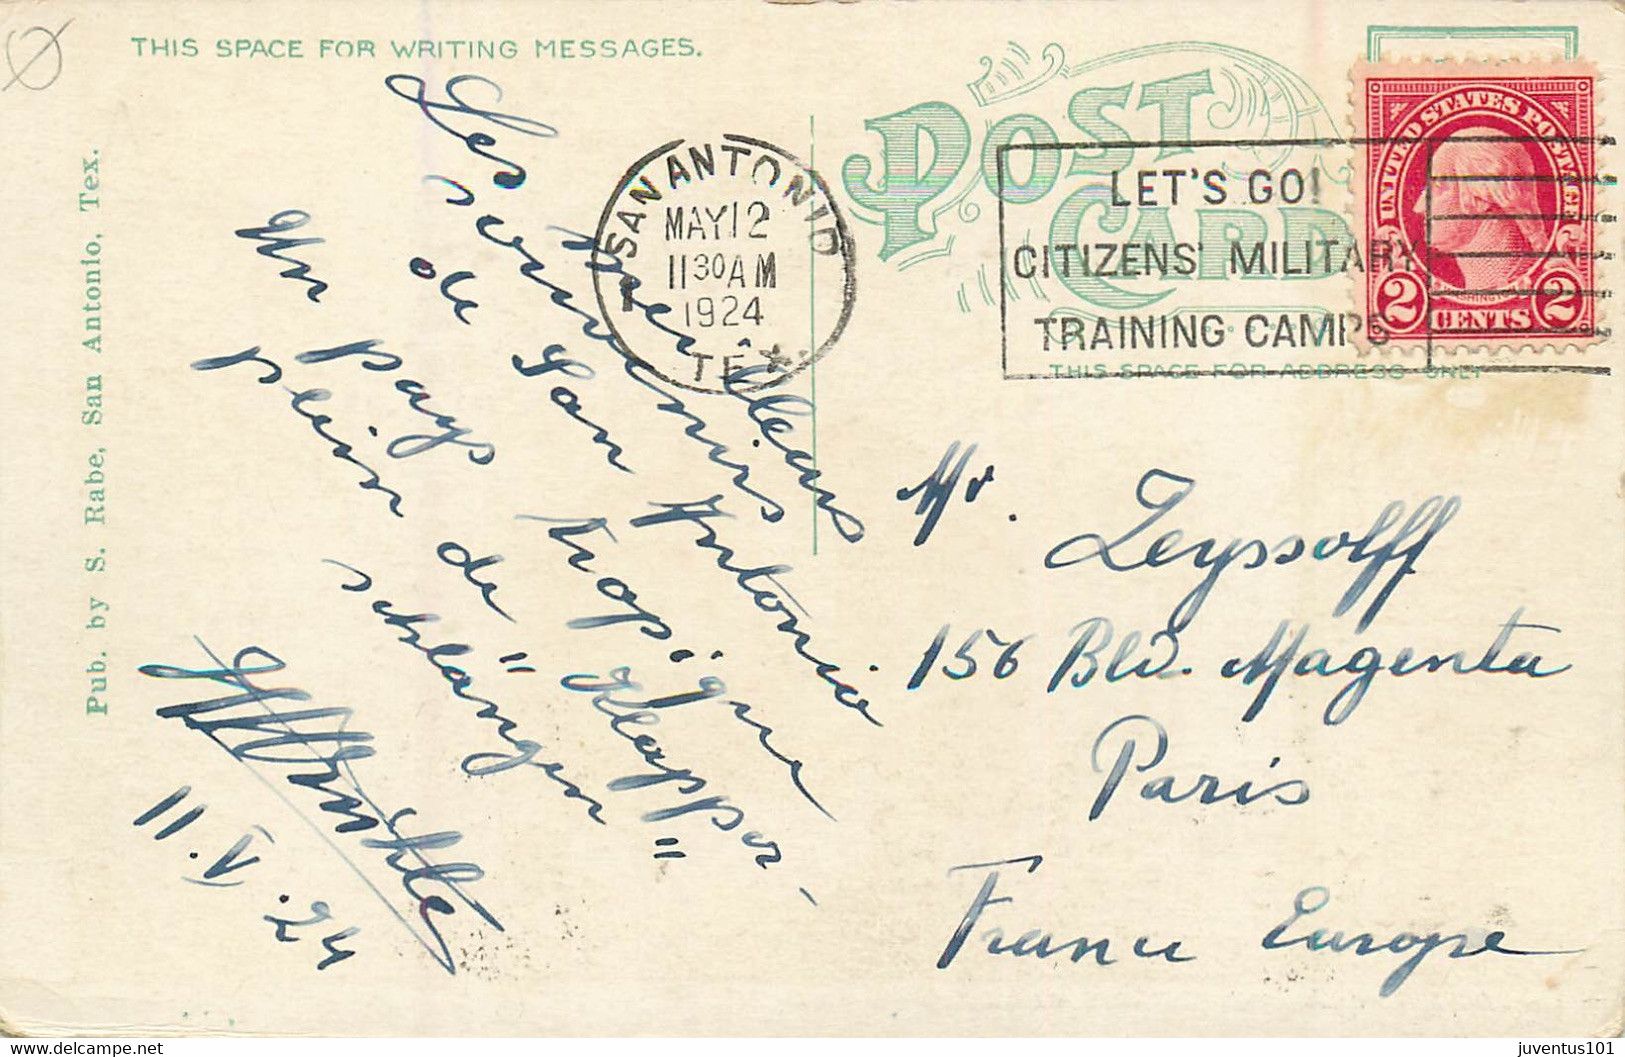 THIS SPACE FOR WRITING MESSAGES.
Pub. by S. Rabe, San Antonio, Tex.
POST CARD
THIS SPACE FOR ADDRESS ONLY
SAN ANTONIO
MAY 12
11 30 AM
1924
TEX
LET'S GO!
CITIZENS' MILITARY
TRAINING CAMPS
UNITED STATES POSTAGE
WASHINGTON
2 CENTS 2
Les meilleurs
souvenirs
de San Antonio
Un pays tropique
plein de "Klapper-
schlangen"
11. V. 24
Mr. Zeyssolff
156 Bld. Magenta
Paris
France Europe
juventus101